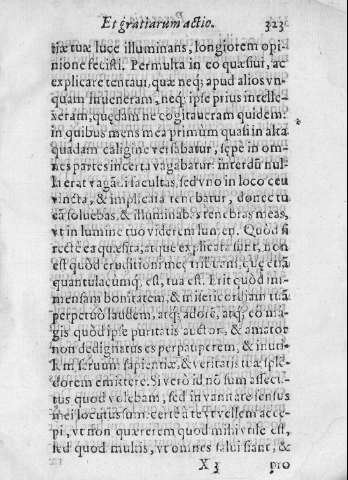 Et gratiarum actio. 323
tiæ tuæ luce illuminans, longiorem opi-
nione fecisti. Permulta in eo quæsiui, ac
explicare tentaui, quæ neq; apud alios vn-
quam inueneram, neq; ipse prius intelle-
xeram, quędam ne cogitaueram quidem:
in quibus mens mea primum quasi in alta
quadam caligine versabatur, sępè in om-
nes partes incerta vagabatur: interdū nul-
la erat vagādi facultas, sed vno in loco ceu
vincta, & implicata tenebatur, donec tu
eā soluebas, & illuminabas tenebras meas,
vt in lumine tuo viderem lumen. Quòd si
rectè ea quæsita, atque explicata sunt, non
est quòd eruditioni meę tribuam, quę etiā
quantulacumq; est, tua est. Erit quòd im-
mensam bonitatem, & misericordiam tuā
perpetuò laudem, atq; adorē, atq; eo ma-
gis quòd ipse puritatis auctor, & amator
non dedignatus es perpauperem, & inuti-
lem seruum sapientiæ, & veritatis tuæ splē-
dorem emittere. Si verò id nō sum assecu-
tus quod volebam, sed in vanitate sensus
mei locutus sum: certè à te t velle m acce-
pi, vt non quærerem quod mihi vtile est,
sed quod multis, vt omnes salui fiant, &
X 3 pro